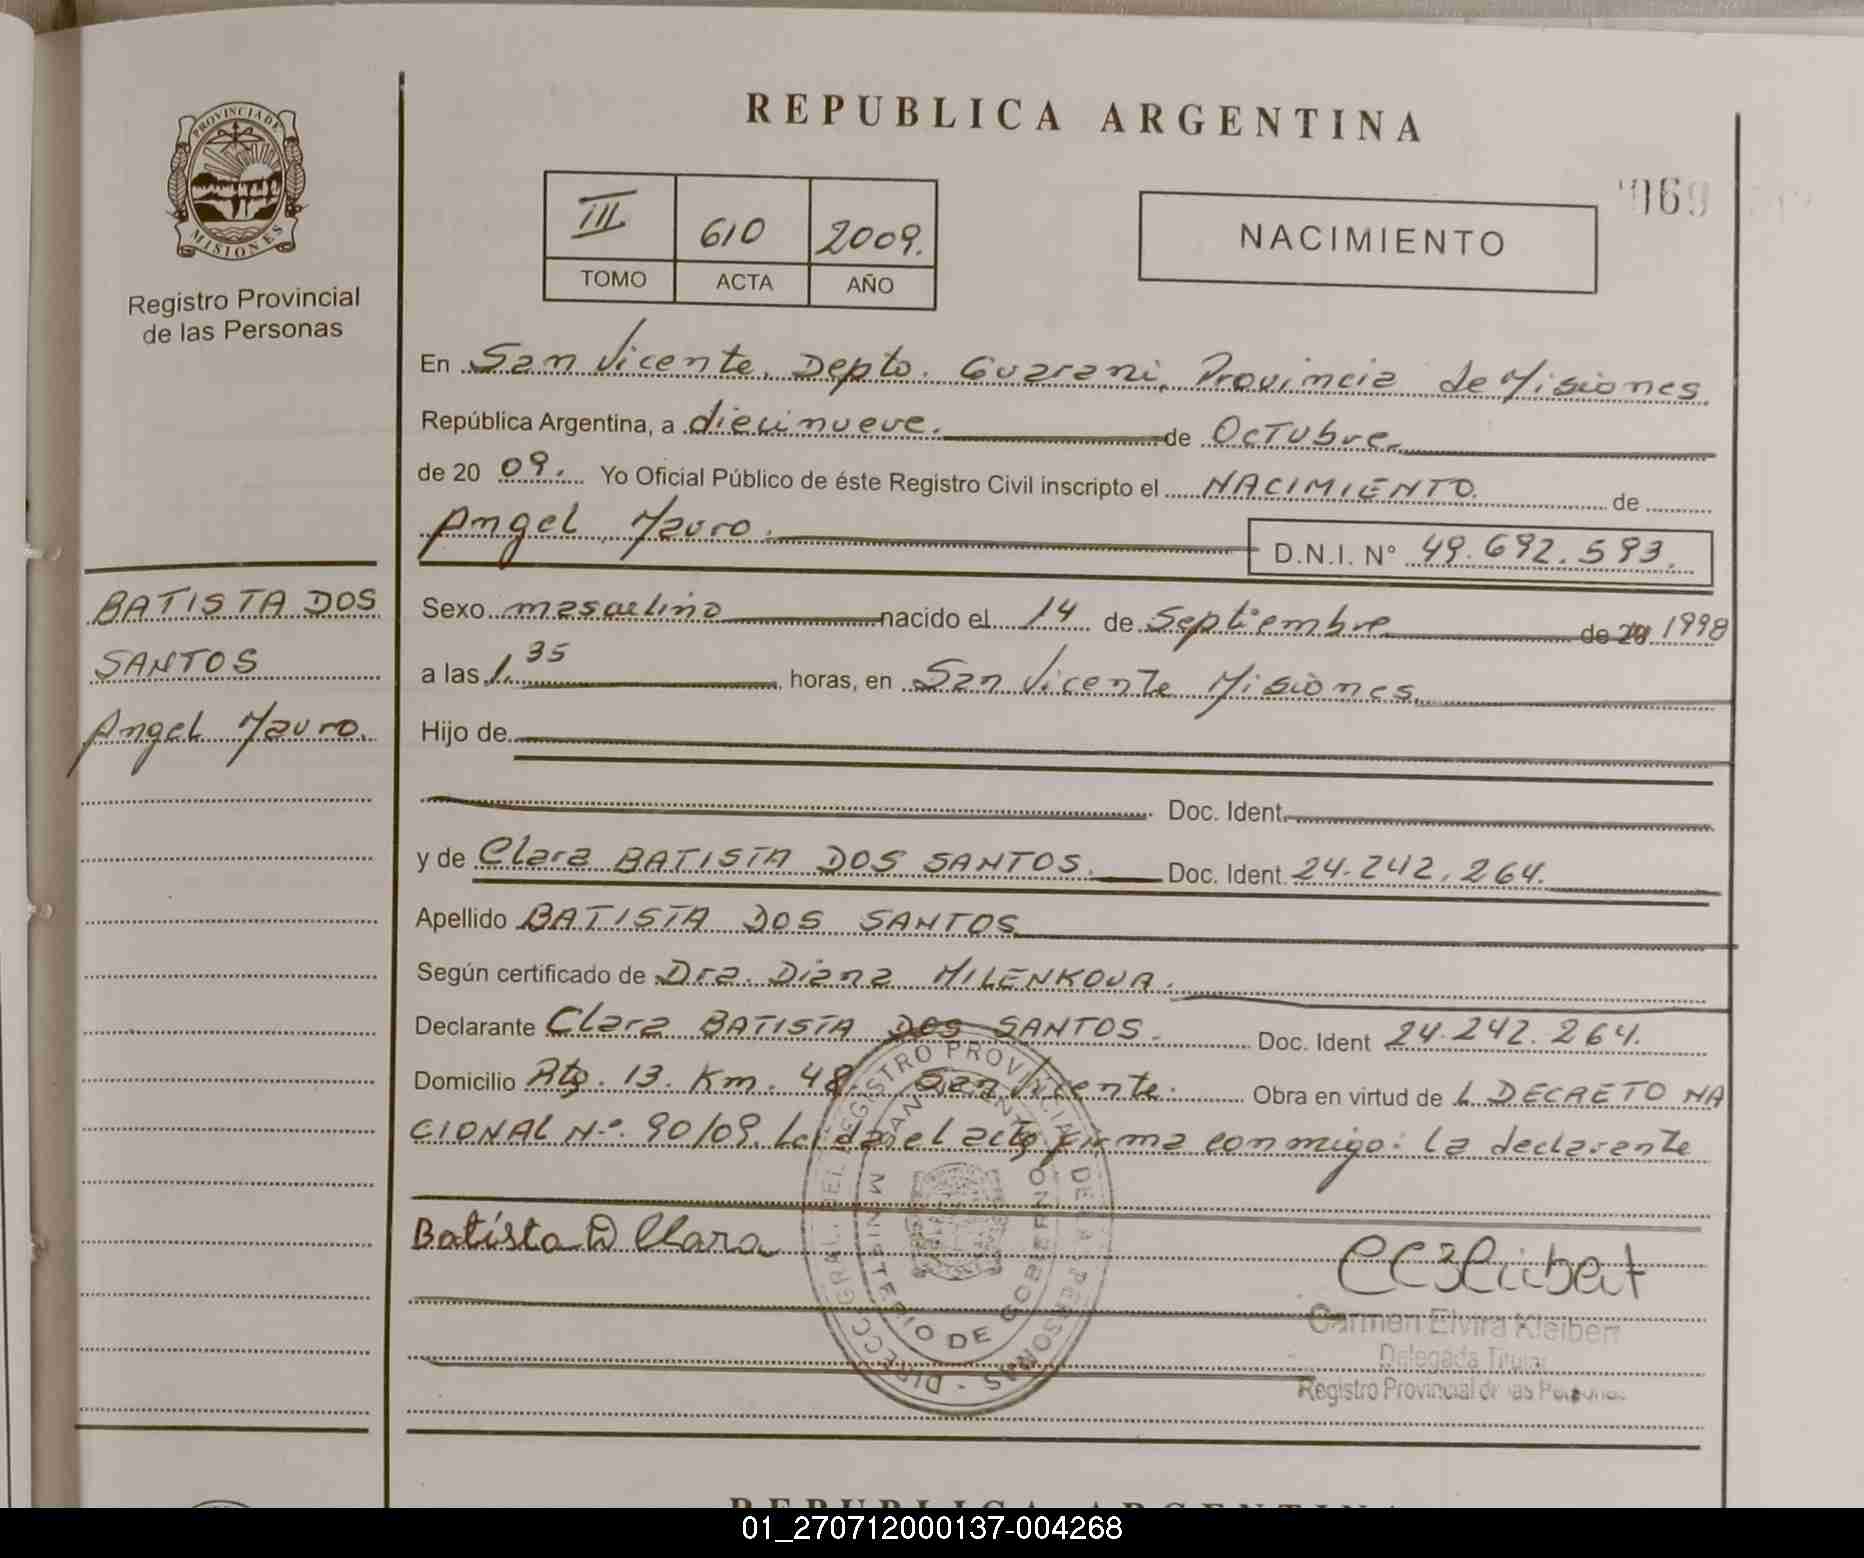 REPUBLICA ARGENTINA
PROVINCIA DE
MISIONES
Registro Provincial
de las Personas
III 610 2009.
TOMO ACTA AÑO
NACIMIENTO
069
En San Vicente, Depto. Guarani, Provincia de Misiones
República Argentina, a diecinueve. de Octubre.
de 20 09. Yo Oficial Público de éste Registro Civil inscripto el NACIMIENTO. de
Angel Mauro. D.N.I. N° 49.692.593.
BATISTA DOS
SANTOS
Angel Mauro.
Sexo masculino nacido el 14 de Septiembre de 20 1998
a las 1.35 horas, en San Vicente Misiones.
Hijo de
Doc. Ident.
y de Clara BATISTA DOS SANTOS. Doc. Ident. 24.242.264.
Apellido BATISTA DOS SANTOS
Según certificado de Dra. Diana MILENKOVA.
Declarante Clara BATISTA DOS SANTOS. Doc. Ident 24.242.264.
Domicilio Rta. 13. Km. 48. San Vicente. Obra en virtud de L DECRETO NA
CIONAL N°. 90/09. Leida el acta firma conmigo: la declarante
Batista D Clara
DIRECC. GRAL. DEL REGISTRO PROVINCIAL DE LAS PERSONAS -
SAN VICENTE
MINISTERIO DE GOBIERNO
Carmen Elvira Kleibert
Delegada Titular
Registro Provincial de las Personas
REPUBLICA ARGENTINA
01_270712000137-004268